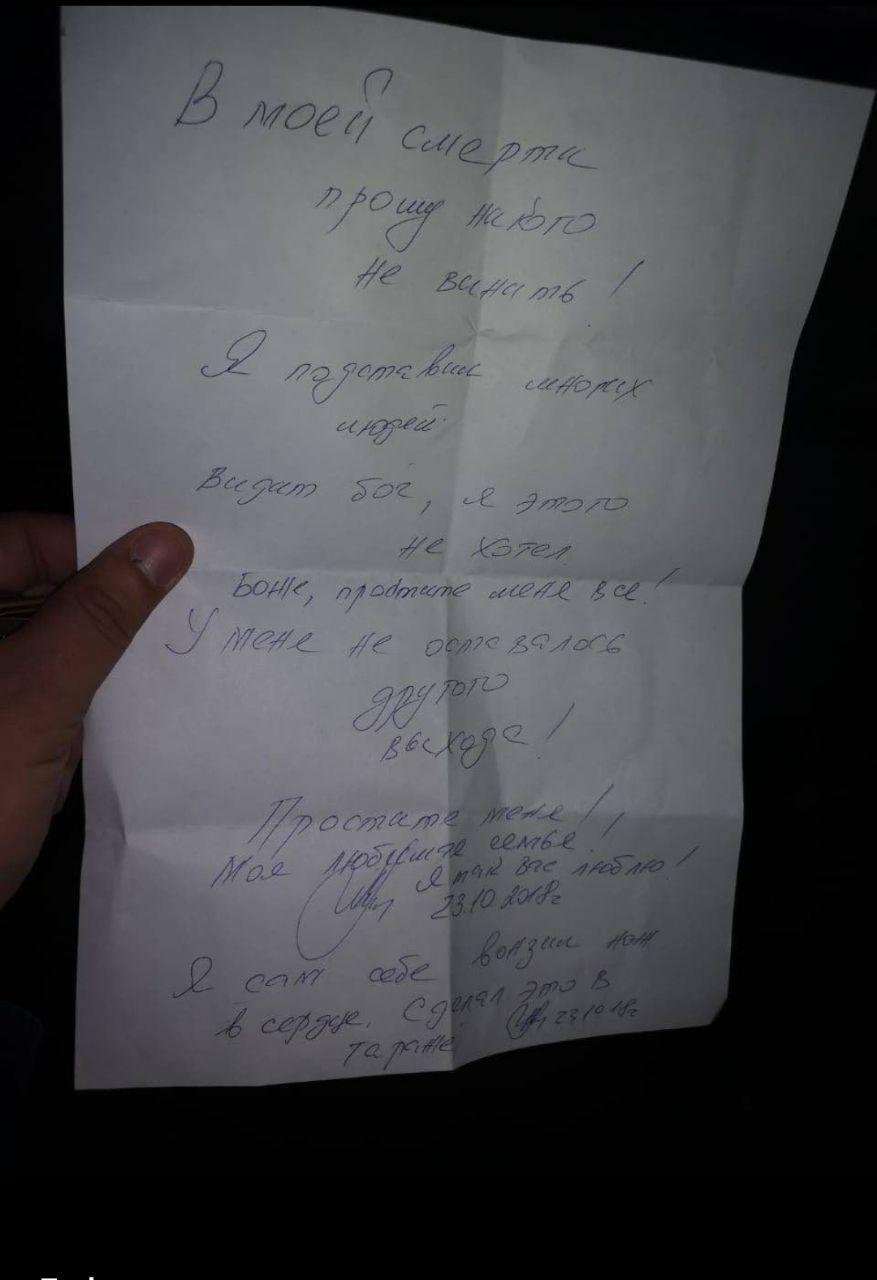 В моей смерти
прошу никого
не винить!
Я подставил многих
людей.
Видит бог, я этого
не хотел.
Боже, простите меня все!
У меня не оставалось
другого
выхода!
Простите меня!
Моя любимая семья!
Я так вас люблю!
23.10.2018г
Я сам себе вонзил нож
в сердце. Сделал это в
гараже. 23.10.18г